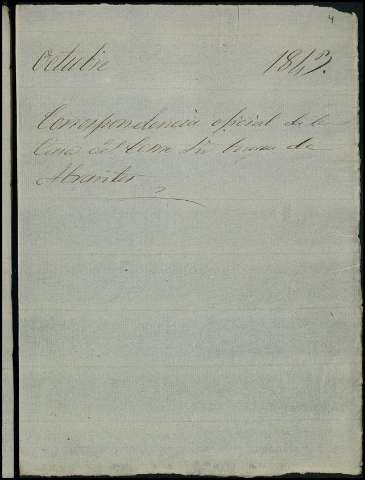 4
Octubre 1842.
Correspondencia oficial de la
Casa del Exmo Sr Duque de
Abrantes